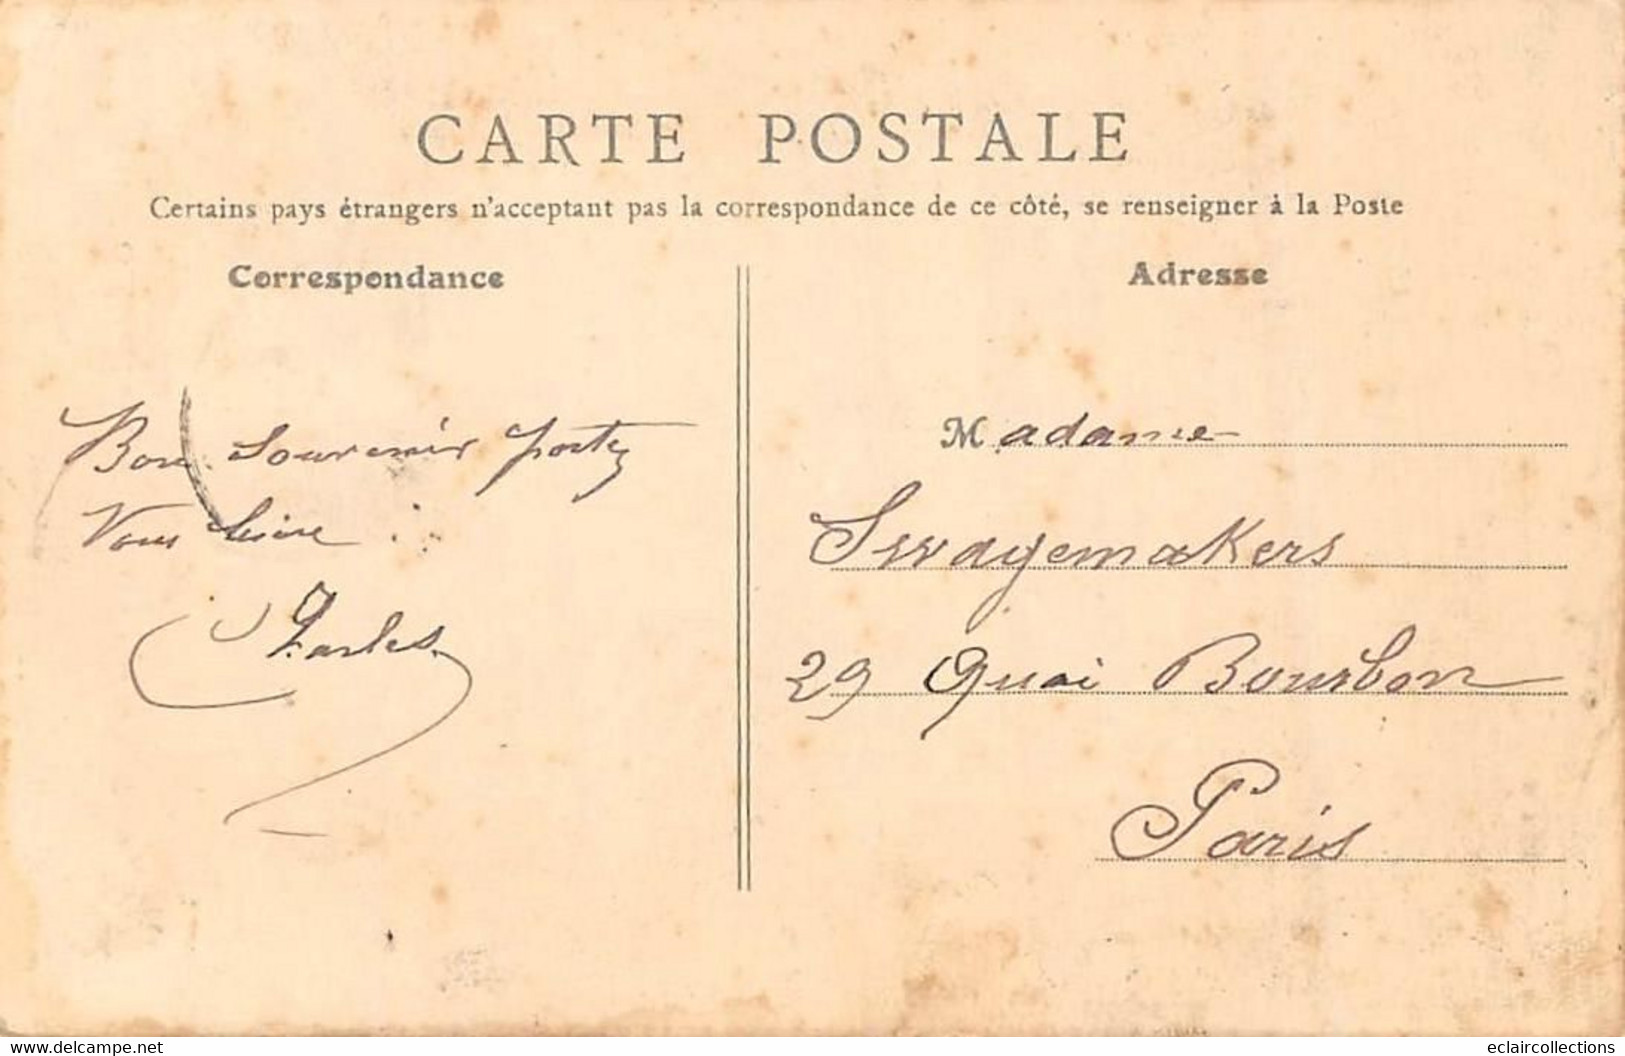 CARTE POSTALE
Certains pays étrangers n'acceptant pas la correspondance de ce côté, se renseigner à la Poste
Correspondance
Adresse
Bon Souvenir portez
Vous bien
Charles
Madame
Swagemakers
29 Quai Bourbon
Paris
www.delcampe.net
eclaircollections